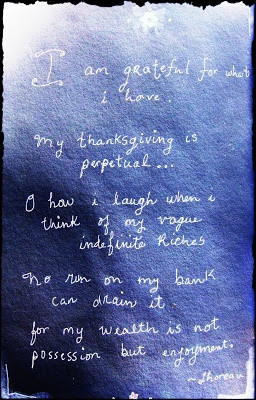 I am grateful for what
i have.
My thanksgiving is
perpetual...
O how i laugh when i
think of my vague
indefinite Riches
No run on my bank
can drain it
for my wealth is not
possession but enjoyment.
~Thoreau